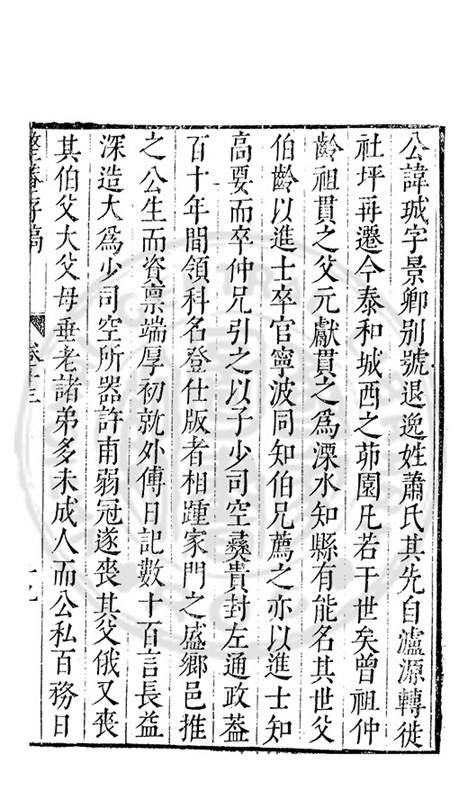 公諱珹字景卿別號退逸姓蕭氏其先自瀘源轉徙
社坪再遷今泰和城西之茆園凡若干世矣曾祖仲
齡祖貫之父元獻貫之為溧水知縣有能名其世父
伯齡以進士卒官寧波同知伯兄薦之亦以進士知
高要而卒仲兄引之以子少司空彞貴封左通政葢
百十年間領科名登仕版者相踵家門之盛鄉邑推
之公生而資禀端厚初就外傅日記數十百言長益
深造大為少司空所器許甫弱冠遂喪其父俄又喪
其伯父大父母垂老諸弟多未成人而公私百務日
整菴存稿 卷十三